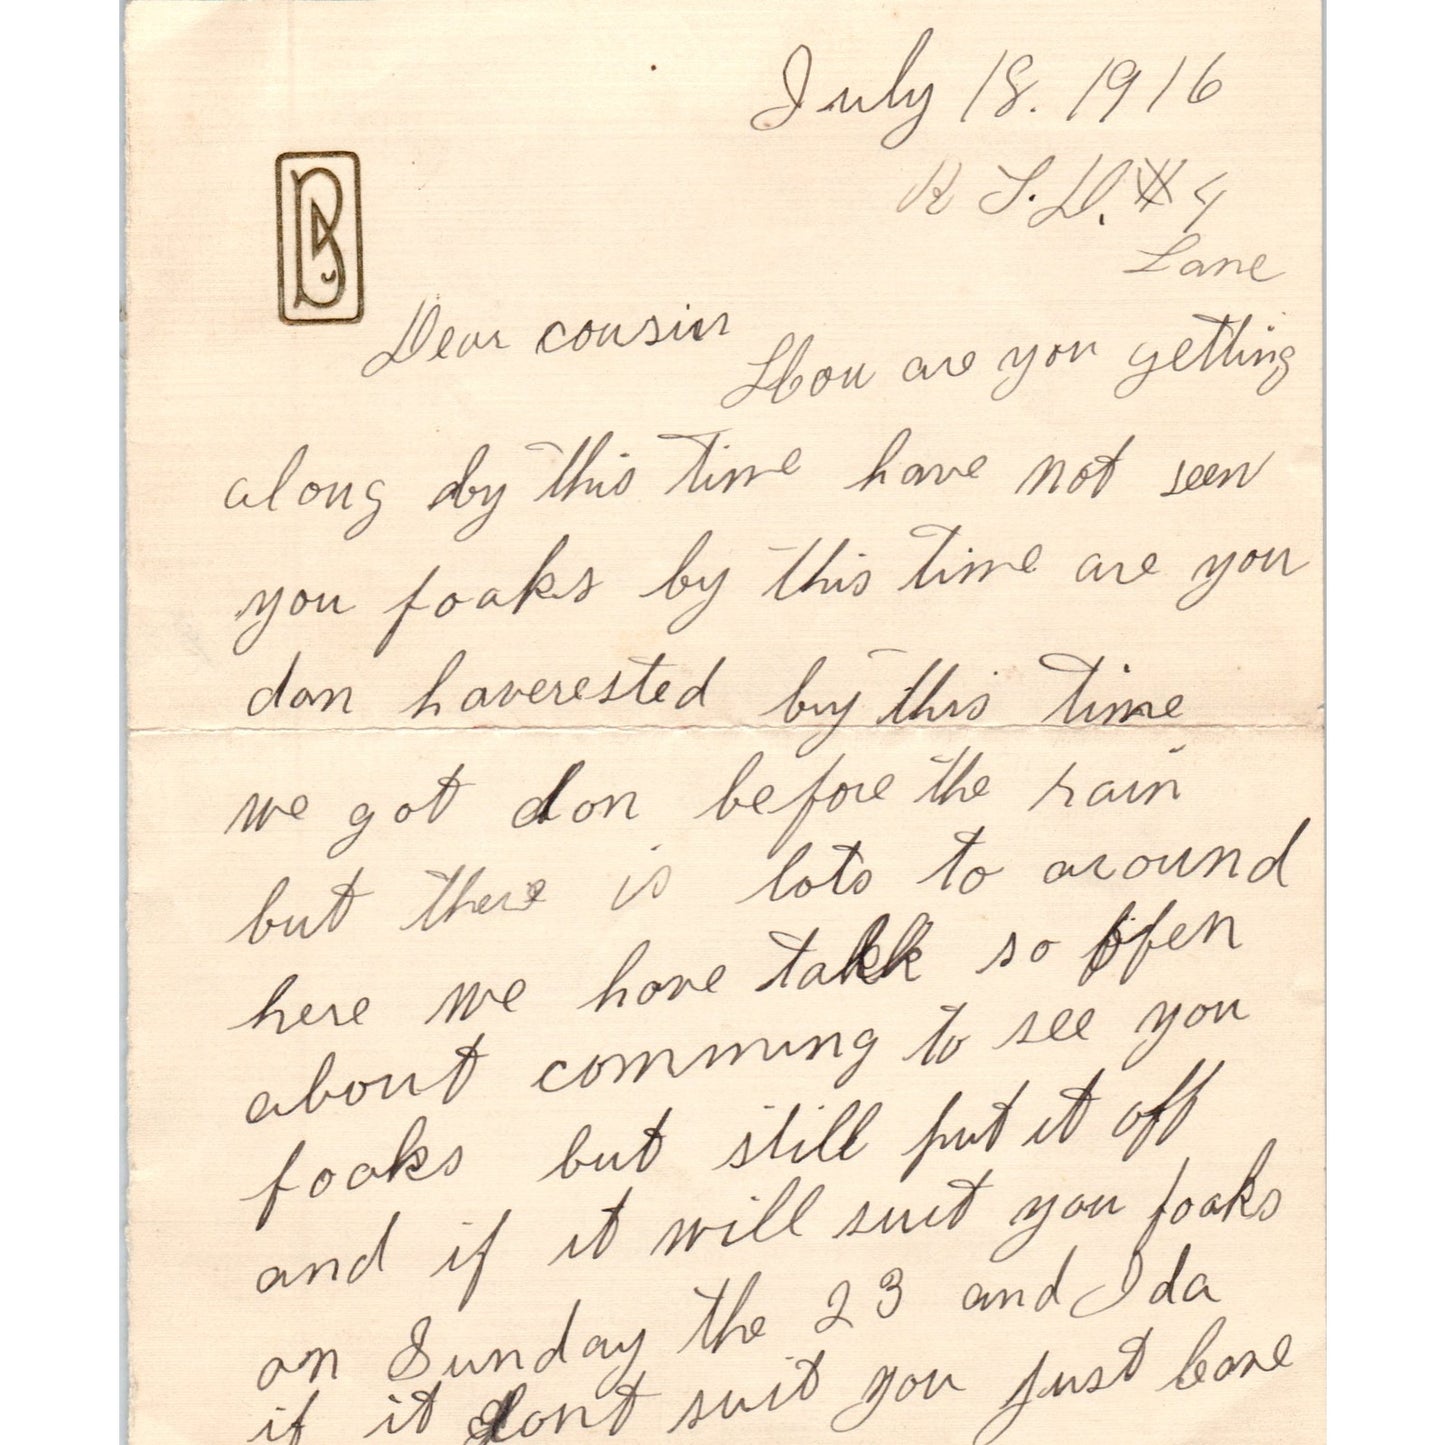 July 18. 1916
R F.D. #4
Lane
B
Dear cousin
How are you getting
along by this time have not seen
you foaks by this time are you
don haverested by this time
we got don before the rain
but there is lots to around
here we have talk so ofen
about comming to see you
foaks but still put it off
and if it will suit you foaks
on Sunday the 23 and Ida
if it dont suit you just